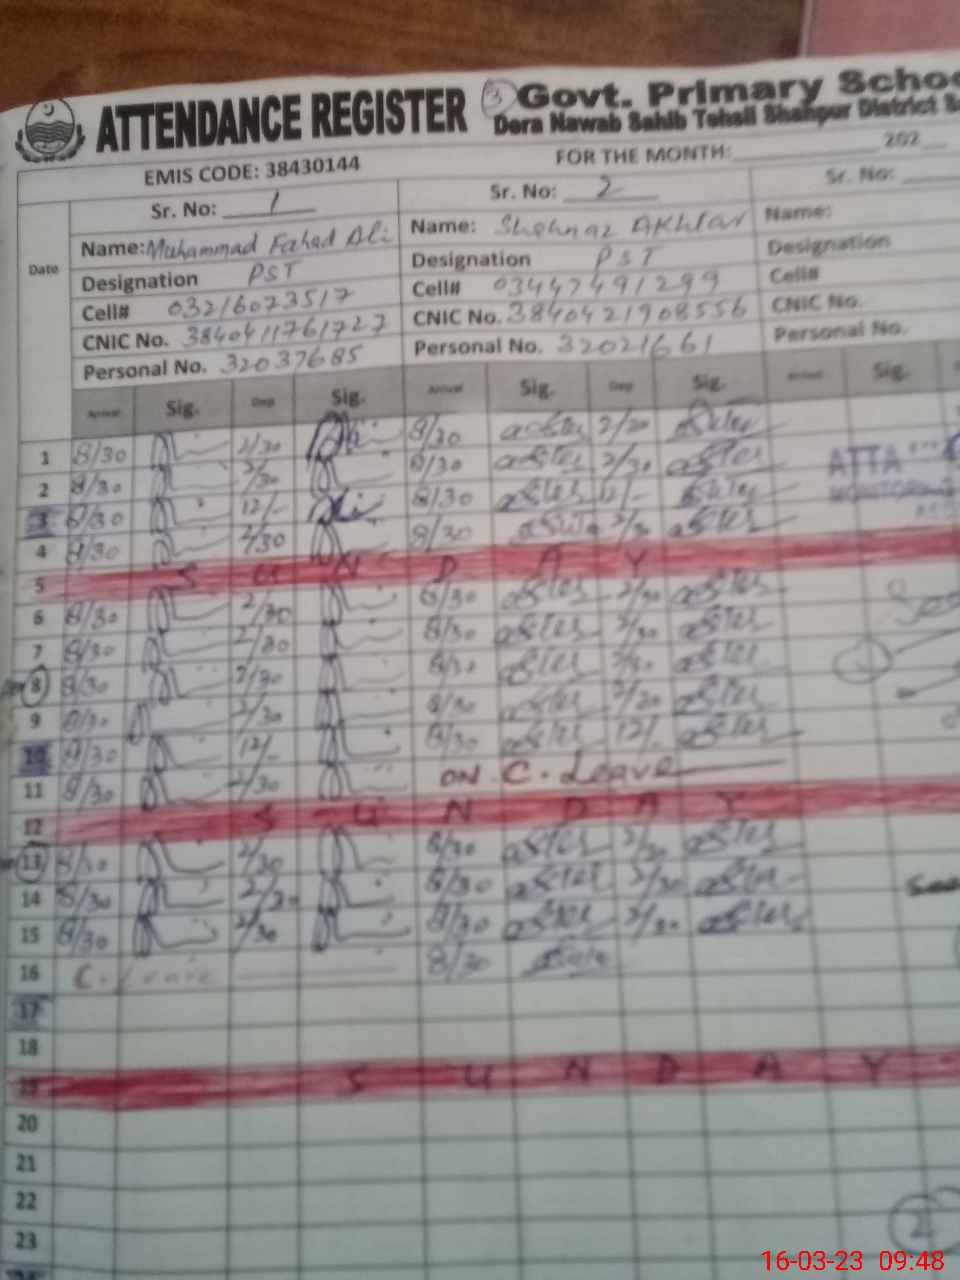 ATTENDANCE REGISTER
3 Govt. Primary Schoo
Dera Nawab Sahib Tehsil Shahpur District S
EMIS CODE: 38430144
FOR THE MONTH: 202
Sr. No: 1 Sr. No: 2 Sr. No:
Date
Name: Muhammad Fahad Ali Name: Shehnaz Akhtar Name:
Designation PST Designation PST Designation
Cell# 03216073517 Cell# 03447491299 Cell#
CNIC No. 3840411761727 CNIC No. 3840421908556 CNIC No.
Personal No. 32037685 Personal No. 32021661 Personal No.
Arrival Sig. Dep Sig. Arrival Sig. Dep Sig. Arrival Sig.
1 8/30 2/30 8/30 2/30
2 8/30 2/30 8/30 2/30 ATTA
3 8/30 12/- 8/30 12/- MONITORING
4 8/30 2/30 8/30 2/30
5 SUNDAY
6 8/30 2/30 8/30 2/30
7 8/30 2/30 8/30 2/30
8 8/30 2/30 8/30 2/30
9 8/30 2/30 8/30 2/30
10 8/30 12/- 8/30 12/-
11 8/30 2/30 ON C. Leave
12 SUNDAY
13 8/30 2/30 8/30 2/30
14 8/30 2/30 8/30 2/30
15 8/30 2/30 8/30 2/30
16 C. Leave 8/30
17
18
19 SUNDAY
20
21
22
23
2
16-03-23 09:48